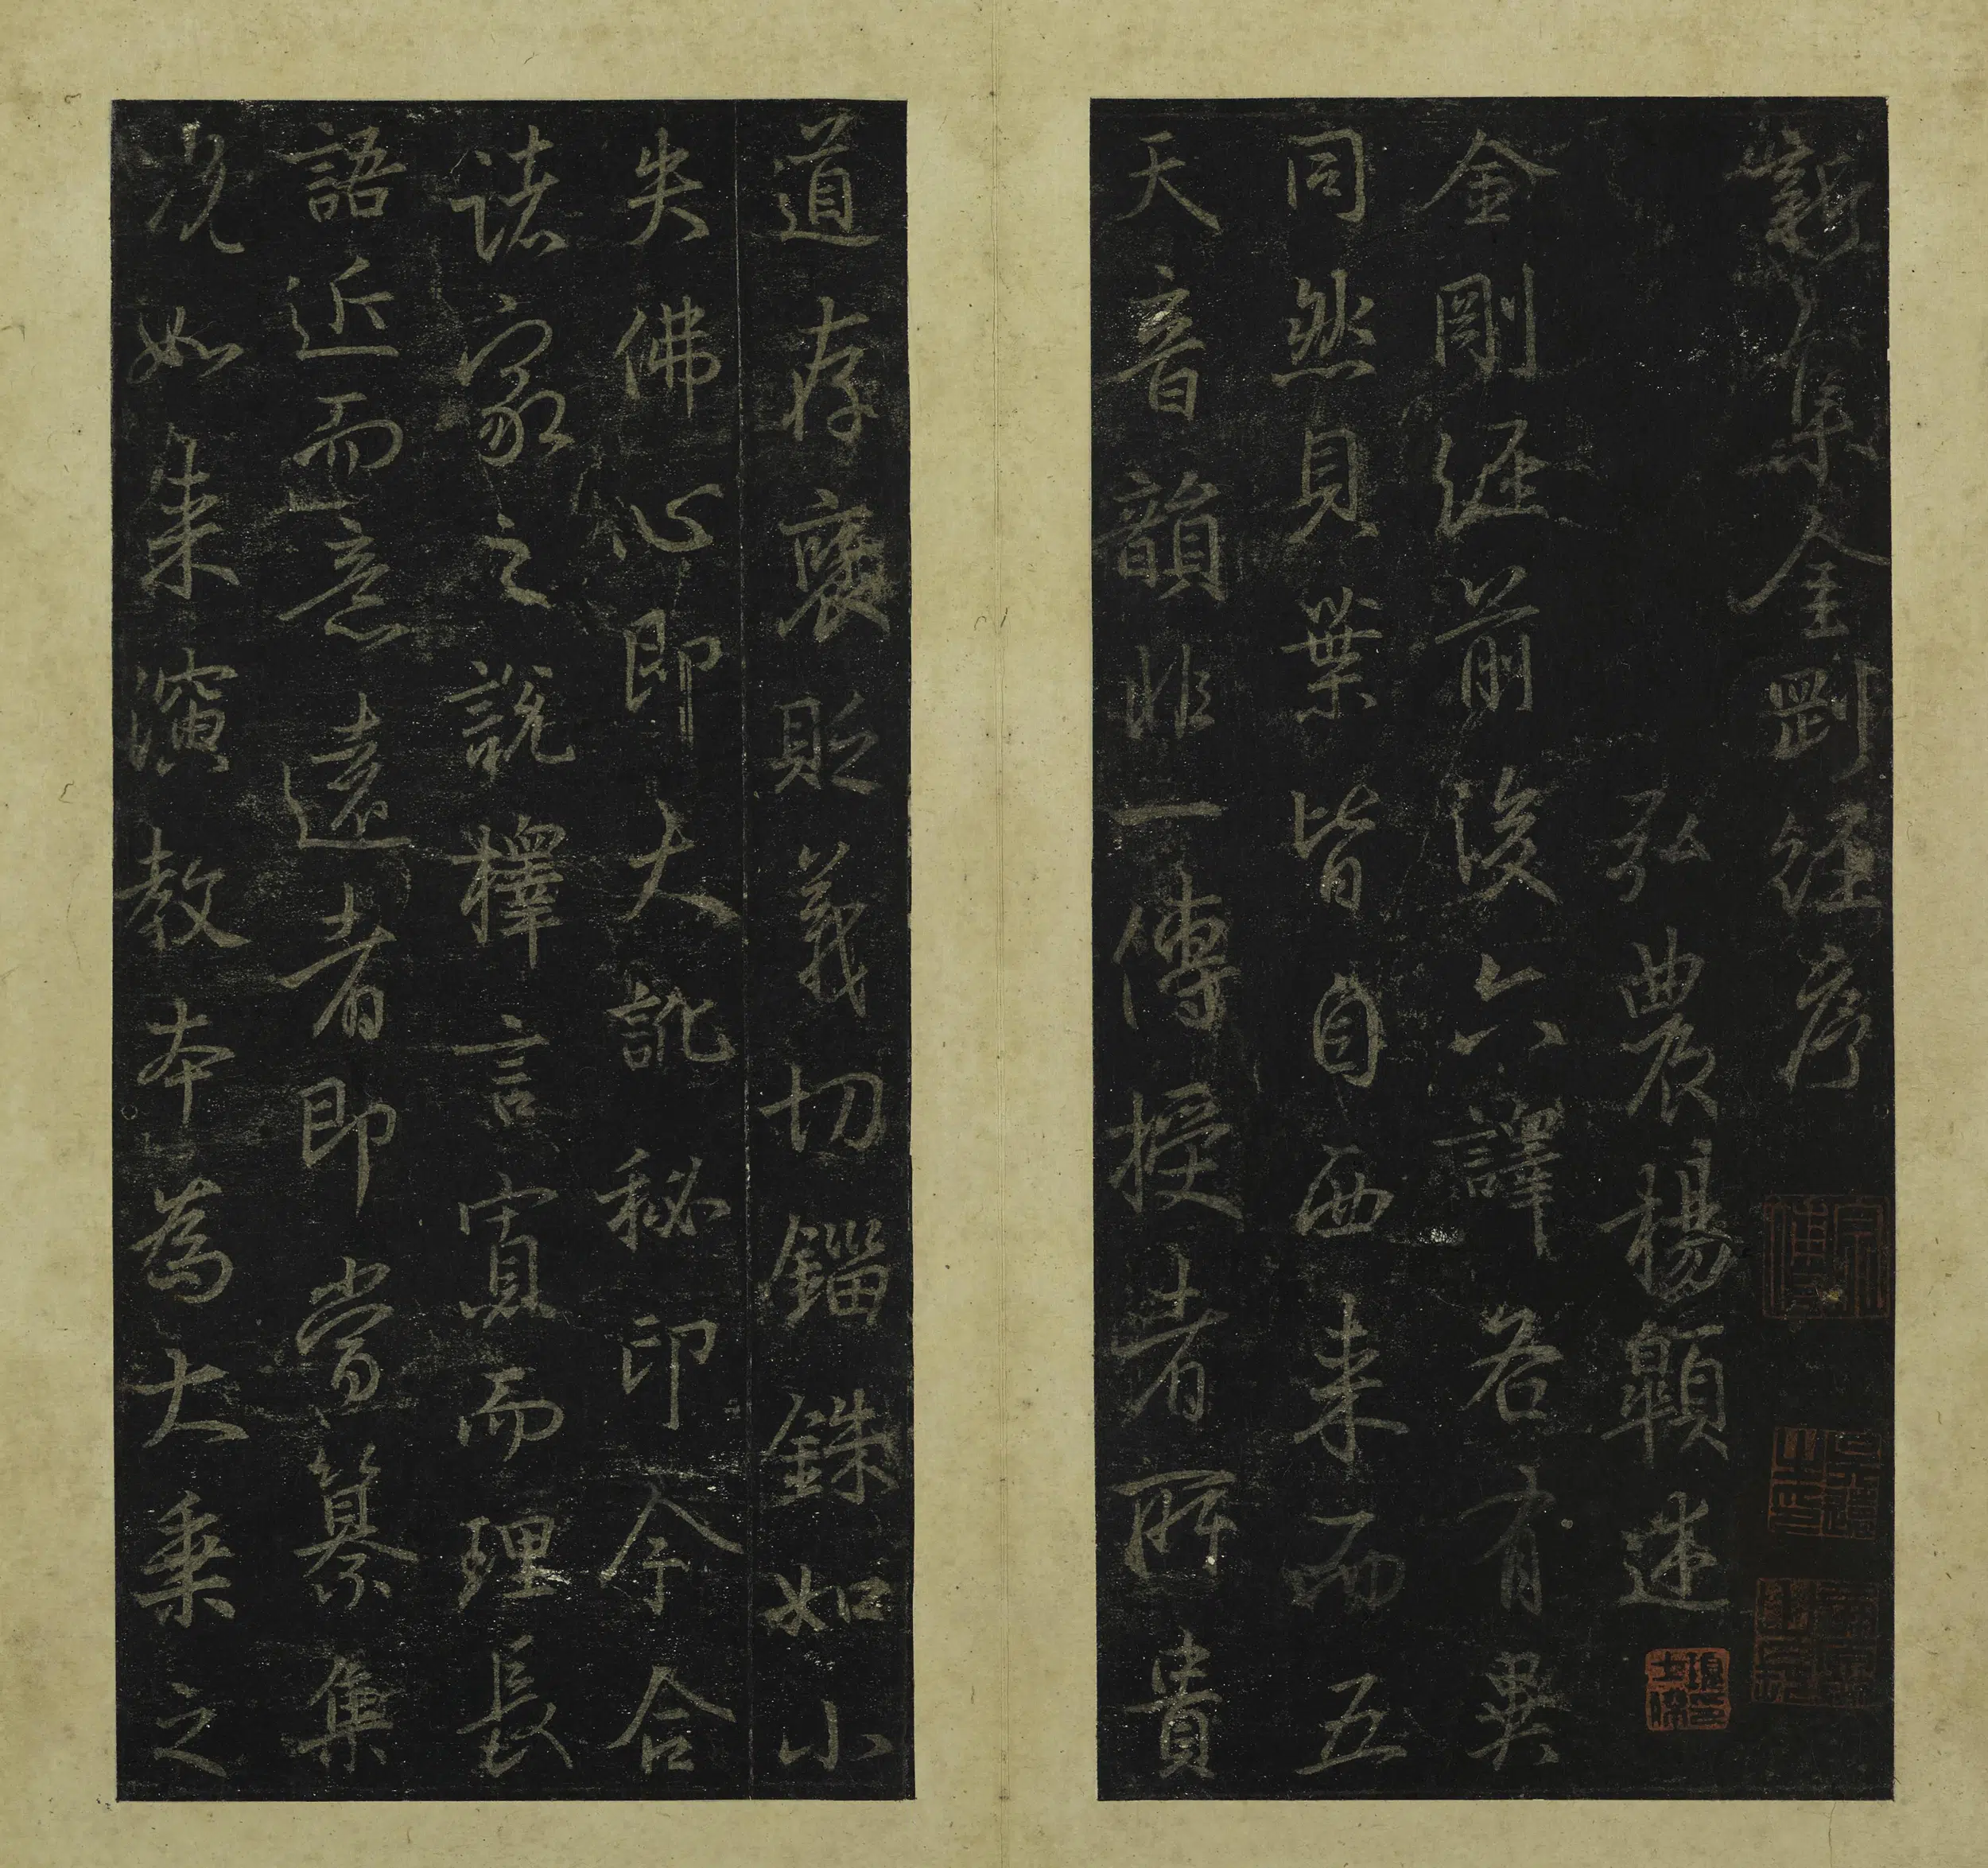 新集金剛經序
弘農楊顗述
金剛經前後六譯各有異
同然貝葉皆自西来而五
天音韻非一傳授者所貴
道存褒貶義切錙銖如小
失佛心即大訛秘印今合
諸家之說擇言寡而理長
語近而意遠者即當纂集
况如来演教本為大乘之